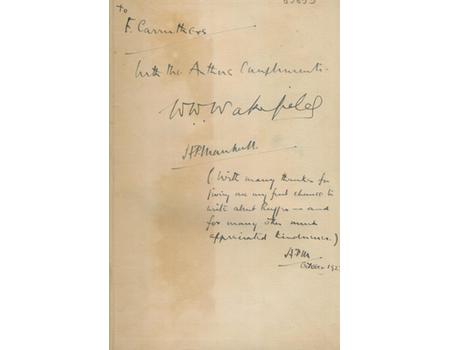 To
F. Carruthers
With the Authors Compliments.
W.W. Wakefield
H.P. Marshall.
(With many thanks for
giving me my first chance to
write about Rugger — and
for many other much
appreciated kindnesses.)
H.P.M.
October 192